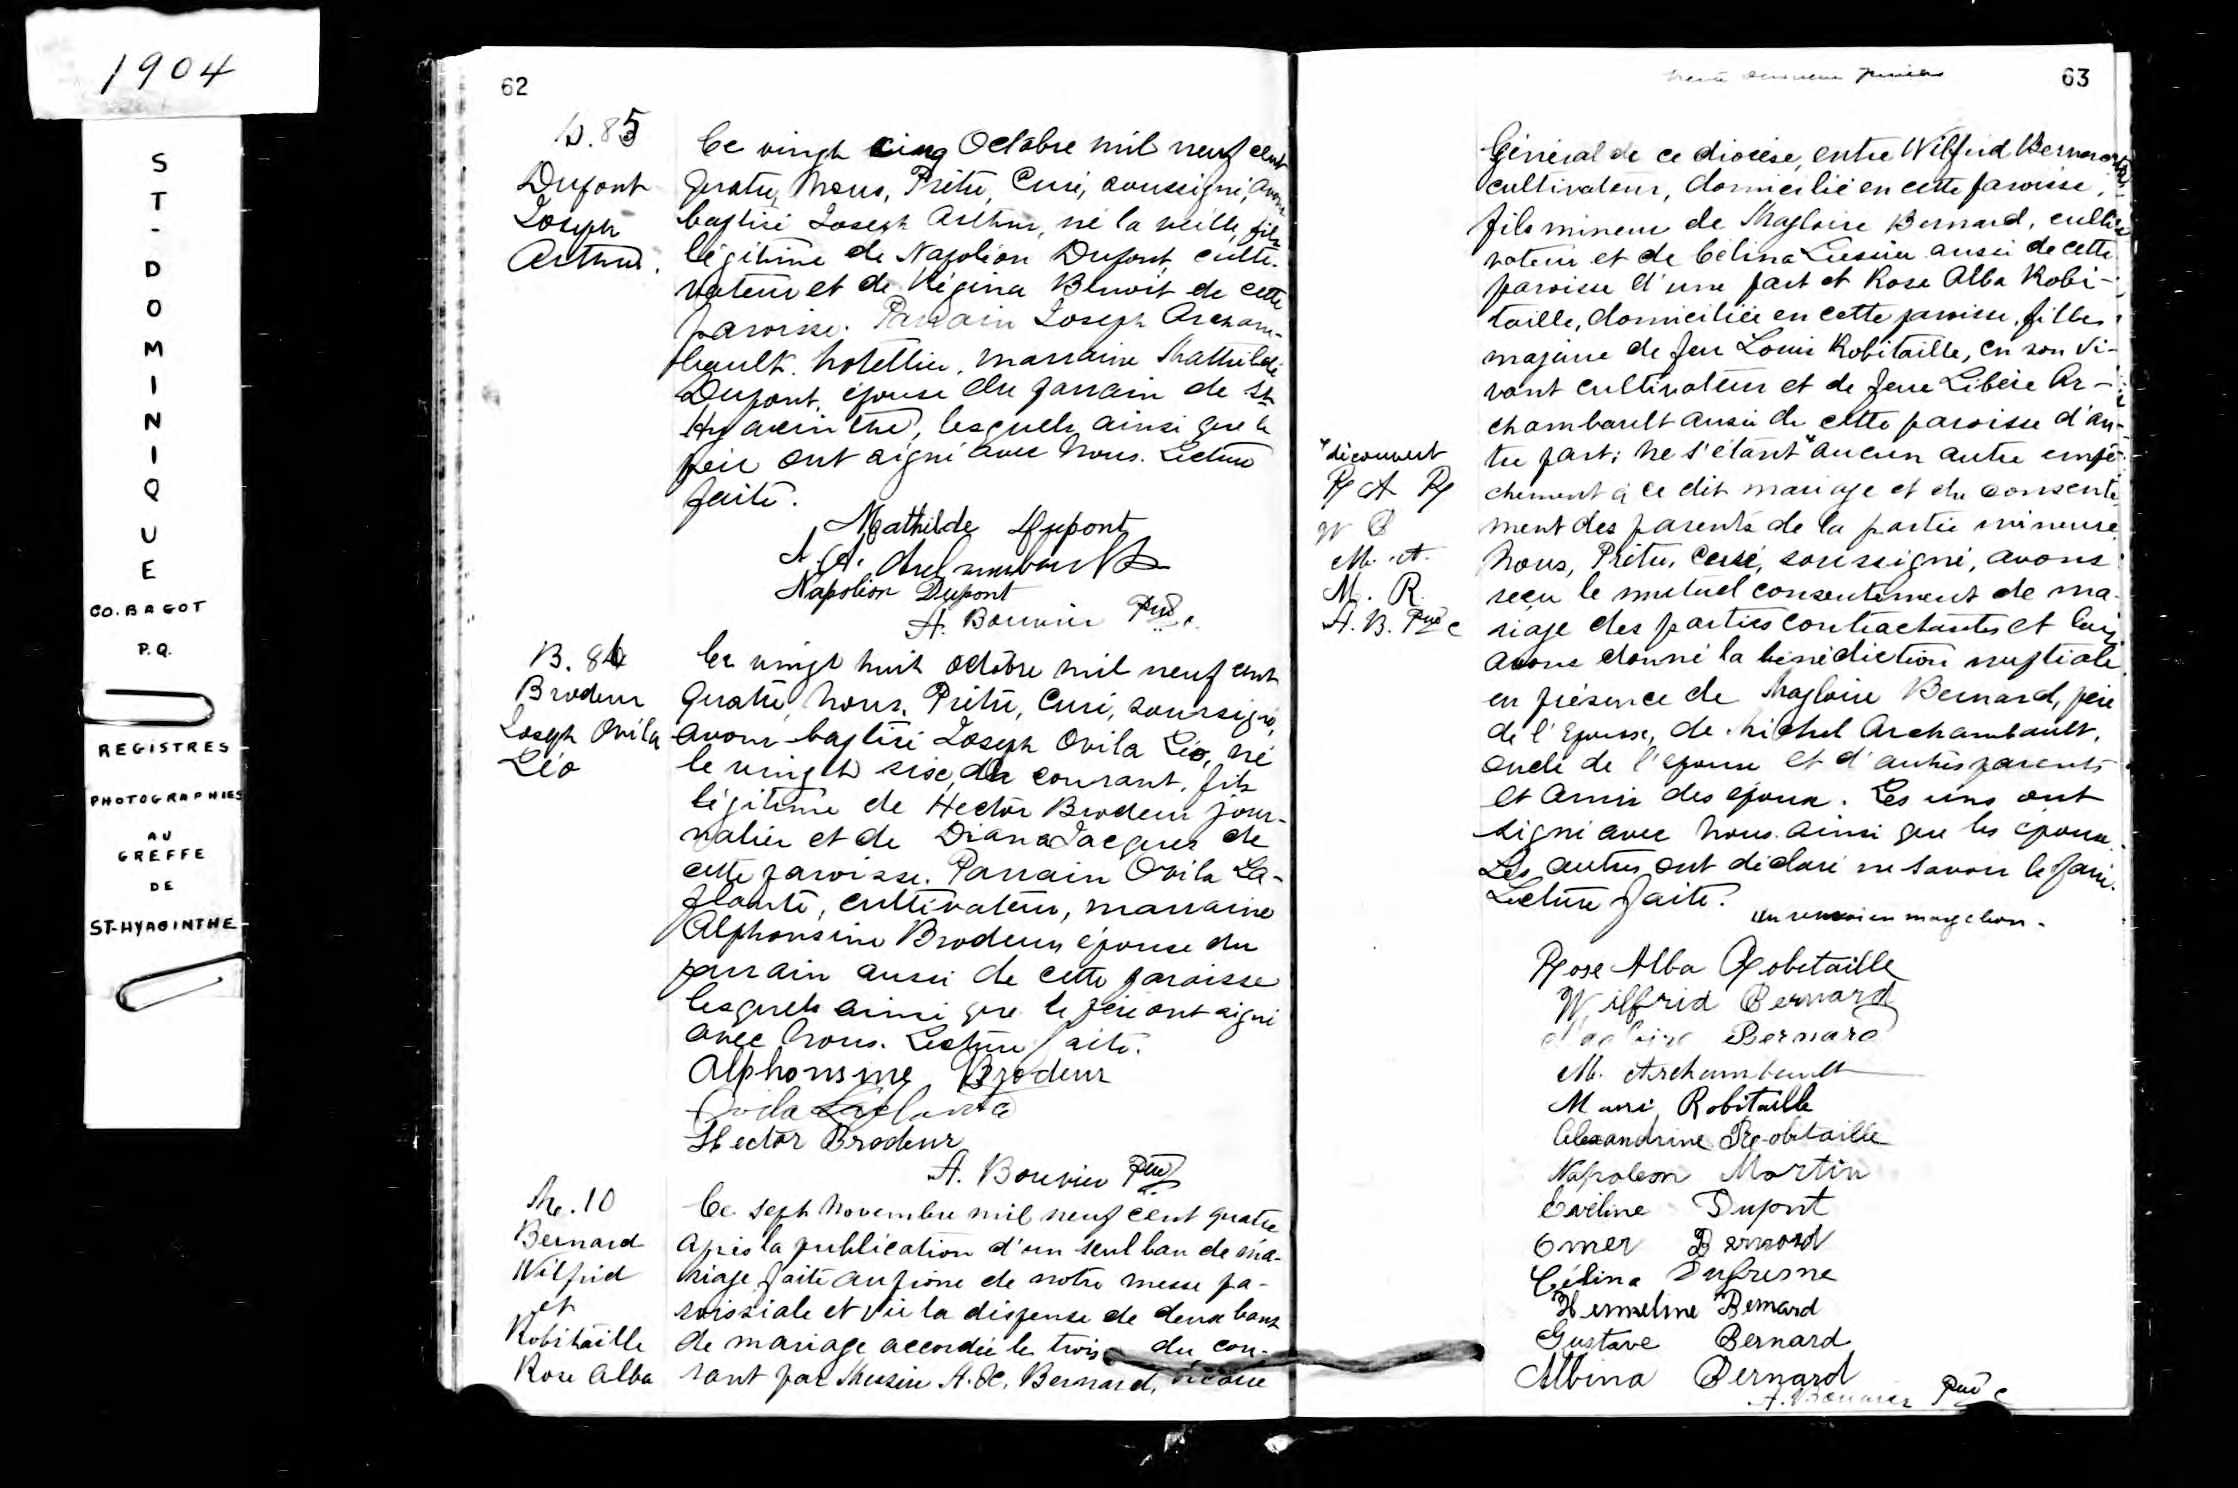 1904
ST-DOMINIQUE
CO. BAGOT
P.Q.
REGISTRES
PHOTOGRAPHIES
AU
GREFFE
DE
ST-HYACINTHE
62
B. 85
Dupont
Joseph
Arthur.
Ce vingt cinq Octobre mil neuf cent
quatre, Nous, Prêtre, Curé, soussigné, avons
baptisé Joseph Arthur, né la veille, fils
légitime de Napoléon Dupont, culti-
vateur et de Régina Benoit de cette
paroisse. Parrain Joseph Archam-
bault. hotellier, marraine Mathilde
Dupont, épouse du parrain de St
Hyacinthe, lesquels ainsi que le
père ont signé avec Nous. Lecture
faite.
Mathilde Dupont
J. A. Archambault
Napoléon Dupont
A. Bouvier Ptre c.
B. 86
Brodeur
Joseph Ovila
Léo
Ce vingt huit octobre mil neuf cent
quatre, Nous, Prêtre, Curé, soussigné,
avons baptisé Joseph Ovila Léo, né
le vingt six du courant, fils
légitime de Hector Brodeur jour-
nalier et de Diana Jacques de
cette paroisse. Parrain Ovila La-
plante, cultivateur, marraine
Alphonsine Brodeur, épouse du
parrain aussi de cette paroisse
lesquels ainsi que le père ont signé
avec Nous. Lecture faite.
Alphonsine Brodeur
Ovila Laplante
Hector Brodeur
A. Bouvier Ptre c.
M. 10
Bernard
Wilfrid
et
Robitaille
Rose Alba
Ce sept Novembre mil neuf cent quatre
après la publication d'un seul ban de ma-
riage faite au prône de notre messe pa-
roissiale et vu la dispense de deux bans
de mariage accordée le trois du cou-
rant par Messire A. X. Bernard, vicaire
63
Général de ce diocèse, entre Wilfrid Bernard
cultivateur, domicilié en cette paroisse,
fils mineur de Magloire Bernard, culti-
vateur et de Célina Lussier aussi de cette
paroisse d'une part et Rose Alba Robi-
taille, domiciliée en cette paroisse, filles
majeure de feu Louis Robitaille, en son vi-
vant cultivateur et de feue Libère Ar-
chambault aussi de cette paroisse d'au-
tre part; ne s'étant " aucun autre empê-
chement à ce dit mariage et du consente
ment des parents de la partie mineure
Nous, Prêtre, Curé, soussigné, avons
reçu le mutuel consentement de ma-
riage des parties contractantes et leur
avons donné la bénédiction nuptiale
en présence de Magloire Bernard, père
de l'Epoux, de Michel Archambault,
oncle de l'epouse et d'autres parents
et amis des epoux. Les uns ont
signé avec Nous ainsi que les epoux.
Les autres ont déclaré ne savoir le faire.
Lecture faite.
Un renvoi en marge bon.
"découvert
R A R
W B
M. A.
M. R.
A. B. Ptre c
Rose Alba Robitaille
Wilfrid Bernard
Magloire Bernard
M. Archambault
Marie Robitaille
Alexandrine Robitaille
Napoleon Martin
Eveline Dupont
Omer Bernard
Célina Dufresne
Hermeline Bernard
Gustave Bernard
Albina Bernard
A. Bouvier Ptre c